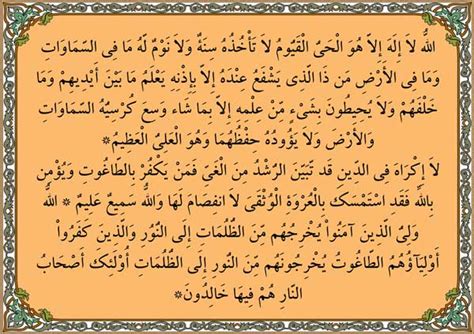 اللهُ لاَ إِلَهَ إِلاَّ هُوَ الْحَىُّ الْقَيُّومُ لاَ تَأْخُذُهُ سِنَةٌ وَلاَ نَوْمٌ لَّهُ مَا فِى السَّمَاوَاتِ
وَمَا فِى الأَرْضِ مَن ذَا الَّذِى يَشْفَعُ عِنْدَهُ إِلاَّ بِإِذْنِهِ يَعْلَمُ مَا بَيْنَ أَيْدِيهِمْ وَمَا
خَلْفَهُمْ وَلاَ يُحِيطُونَ بِشَىْءٍ مِّنْ عِلْمِهِ إِلاَّ بِمَا شَاءَ وَسِعَ كُرْسِيُّهُ السَّمَاوَاتِ
وَالأَرْضَ وَلاَ يَؤُودُهُ حِفْظُهُمَا وَهُوَ الْعَلِىُّ الْعَظِيمُ*
لاَ إِكْرَاهَ فِى الدِّينِ قَد تَّبَيَّنَ الرُّشْدُ مِنَ الْغَىِّ فَمَنْ يَكْفُرْ بِالطَّاغُوتِ وَيُؤْمِن
بِاللهِ فَقَدِ اسْتَمْسَكَ بِالْعُرْوَةِ الْوُثْقَىَ لاَ انفِصَامَ لَهَا وَاللهُ سَمِيعٌ عَلِيمٌ * اللهُ
وَلِىُّ الَّذِينَ آمَنُواْ يُخْرِجُهُم مِّنَ الظُّلُمَاتِ إِلَى النُّوُرِ وَالَّذِينَ كَفَرُواْ
أَوْلِيَآؤُهُمُ الطَّاغُوتُ يُخْرِجُونَهُم مِّنَ النُّورِ إِلَى الظُّلُمَاتِ أُوْلَئِكَ أَصْحَابُ
النَّارِ هُمْ فِيهَا خَالِدُونَ*